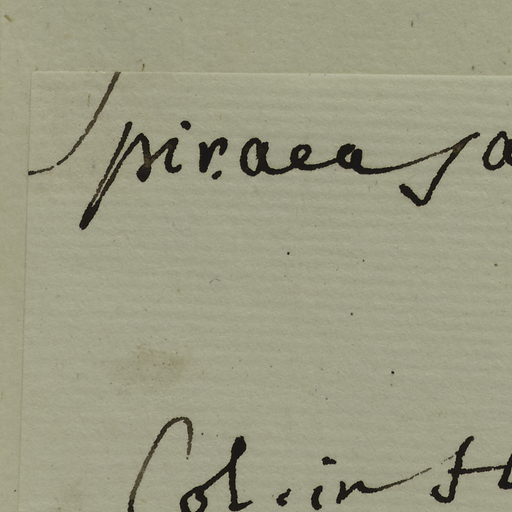 Spiraea sa
Col. in H